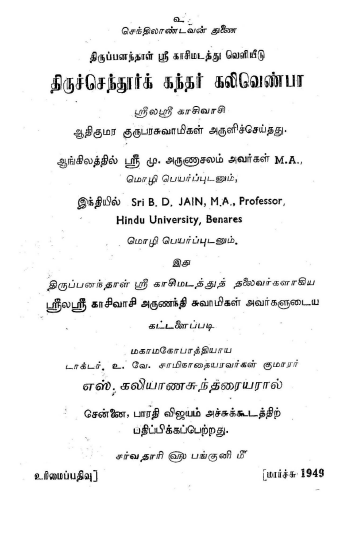 உ
செந்திலாண்டவன் துணை
திருப்பனந்தாள் ஸ்ரீ காசிமடத்து வெளியீடு
திருச்செந்தூர்க் கந்தர் கலிவெண்பா
ஸ்ரீலஸ்ரீ காசிவாசி
ஆதிகுமர குருபரசுவாமிகள் அருளிச்செய்தது.
ஆங்கிலத்தில் ஸ்ரீ மு. அருணாசலம் அவர்கள் M.A.,
மொழி பெயர்ப்புடனும்,
இந்தியில் Sri B. D. JAIN, M.A., Professor,
Hindu University, Benares
மொழி பெயர்ப்புடனும்.
இது
திருப்பனந்தாள் ஸ்ரீ காசிமடத்துத் தலைவர்களாகிய
ஸ்ரீலஸ்ரீ காசிவாசி அருணந்தி சுவாமிகள் அவர்களுடைய
கட்டளைப்படி
மகாமகோபாத்தியாய
டாக்டர். உ. வே. சாமிநாதையரவர்கள் குமாரர்
எஸ். கலியாணசுந்தரையரால்
சென்னை, பாரதி விஜயம் அச்சுக்கூடத்திற்
பதிப்பிக்கப்பெற்றது.
சர்வதாரி ௵ பங்குனி ௴
உரிமைப்பதிவு] [மார்ச்சு 1949